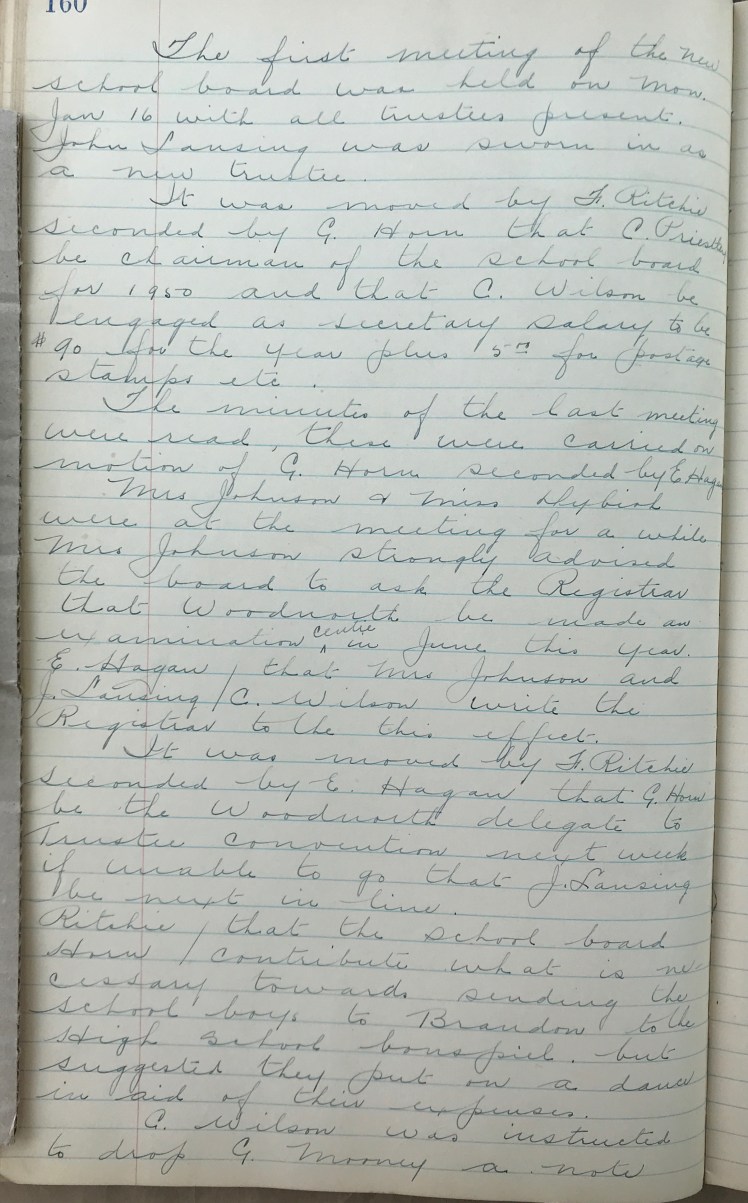 160
The first meeting of the new
school board was held on Mon.
Jan 16 with all trustees present.
John Lansing was sworn in as
a new trustee.
It was moved by F. Ritchie
seconded by G. Horn that C. Priestley
be chairman of the school board
for 1950 and that C. Wilson be
engaged as secretary salary to be
$90 for the year plus 5⁰⁰ for postage
stamps etc.
The minutes of the last meeting
were read, these were carried on
motion of G. Horn seconded by E. Hagan
Mrs Johnson & Miss
were at the meeting for a while
Mrs Johnson strongly advised
the board to ask the Registrar
that Woodnorth be made an
examination centre in June this year.
E. Hagan / that Mrs Johnson and
J. Lansing / C. Wilson write the
Registrar to the this effect.
It was moved by F. Ritchie
seconded by E. Hagan that G. Horn
be the Woodnorth delegate to
Trustee convention next week
if unable to go that J. Lansing
be next in line.
Ritchie / that the school board
Horn / contribute what is ne-
cessary towards sending the
school boys to Brandon to the
High School bonspiel. but
suggested they put on a dance
in aid of their expenses.
C. Wilson was instructed
to drop G. Mooney a note